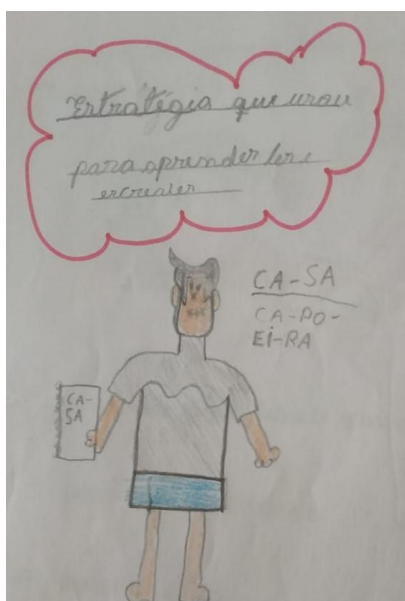 Estratégia que usou
para aprender ler e
escrever
CA-SA
CA-PO-
EI-RA
CA-
SA